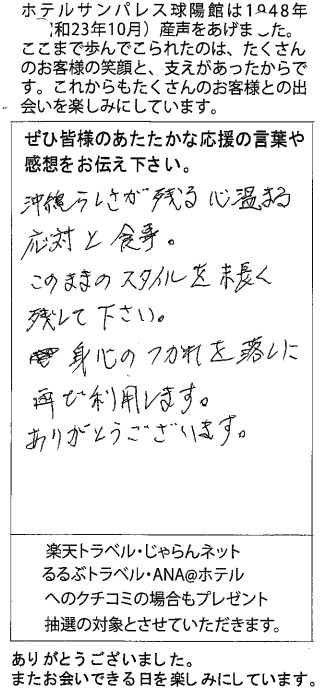 ホテルサンパレス球陽館は1948年
(昭和23年10月）産声をあげました。
ここまで歩んでこられたのは、たくさん
のお客様の笑顔と、支えがあったからで
す。これからもたくさんのお客様との出
会いを楽しみにしています。
ぜひ皆様のあたたかな応援の言葉や
感想をお伝え下さい。
沖縄らしさが残る心温まる
応対と食事。
このままのスタイルを末長く
残して下さい。
身心のつかれを落しに
再び利用します。
ありがとうございます。
楽天トラベル・じゃらんネット
るるぶトラベル・ANA@ホテル
へのクチコミの場合もプレゼント
抽選の対象とさせていただきます。
ありがとうございました。
またお会いできる日を楽しみにしています。